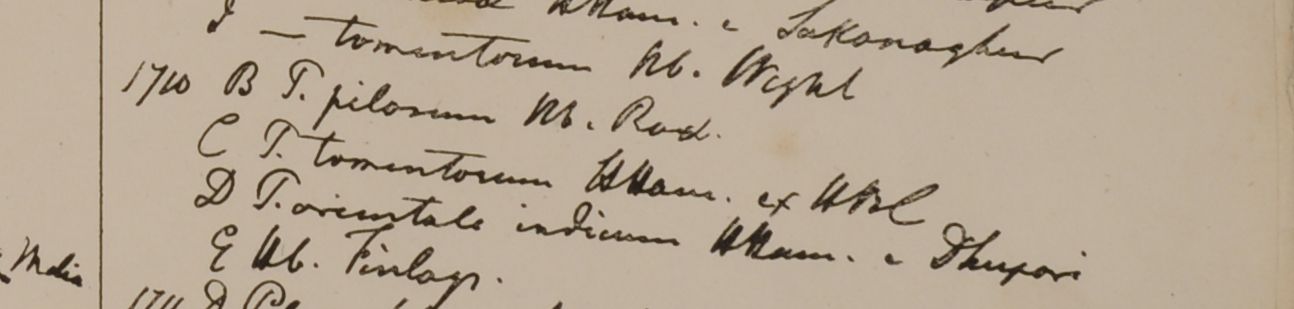 HHam. e Sakanaghur
I — tomentosum Hb. Wight
1710 B T. pilosum Hb. Rox.
C T. tomentosum HHam. ex HBC
D T. orientale indicum HHam. e Dhupori
E Hb. Finlays.
India
1711